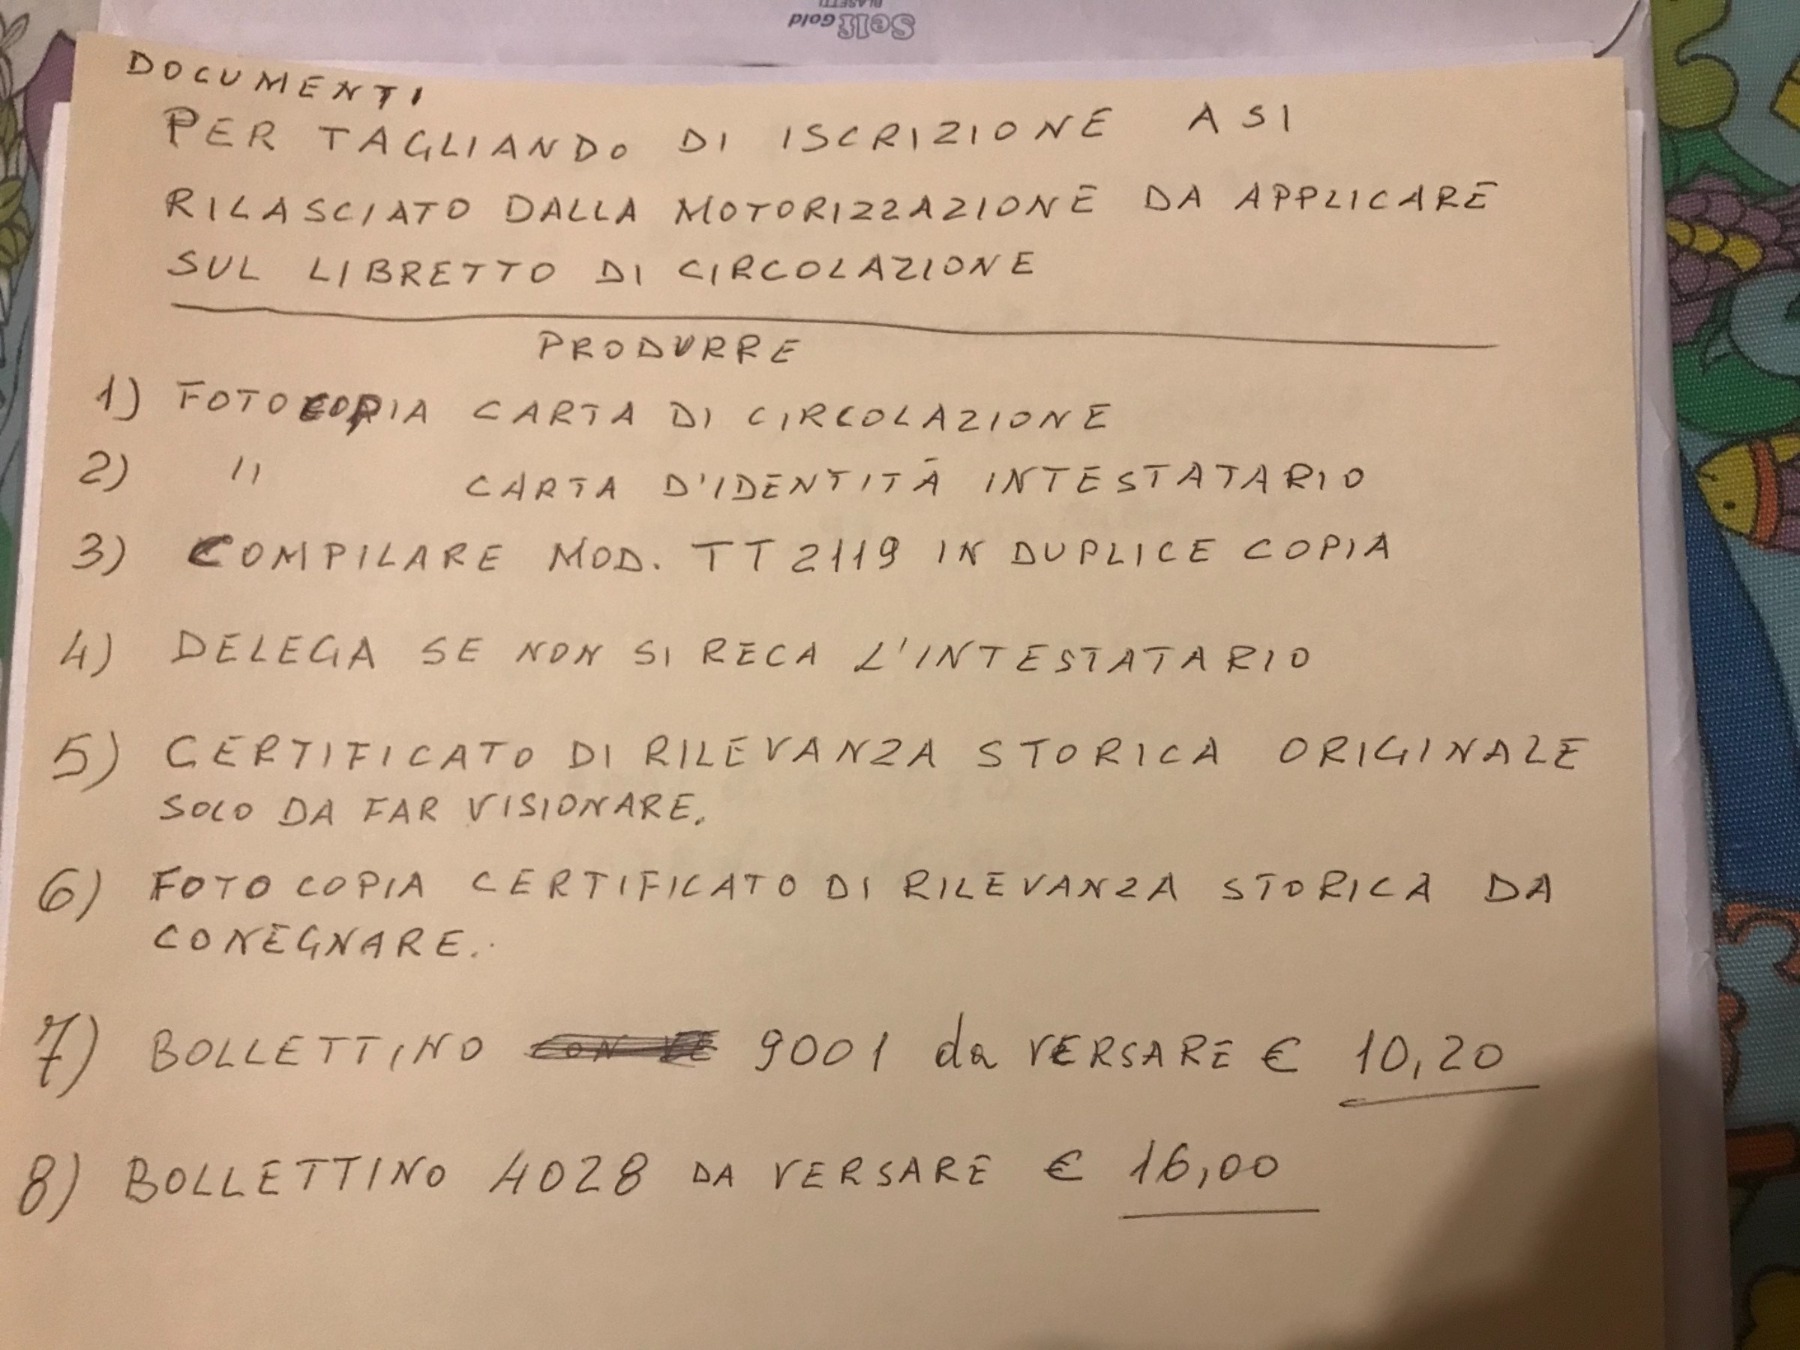 BLASETTI
Self
Gold
DOCUMENTI
PER TAGLIANDO DI ISCRIZIONE ASI
RILASCIATO DALLA MOTORIZZAZIONE DA APPLICARE
SUL LIBRETTO DI CIRCOLAZIONE
PRODURRE
1) FOTOCOPIA CARTA DI CIRCOLAZIONE
2) " CARTA D'IDENTITÀ INTESTATARIO
3) COMPILARE MOD. TT2119 IN DUPLICE COPIA
4) DELEGA SE NON SI RECA L'INTESTATARIO
5) CERTIFICATO DI RILEVANZA STORICA ORIGINALE
SOLO DA FAR VISIONARE.
6) FOTO COPIA CERTIFICATO DI RILEVANZA STORICA DA
CONEGNARE.
7) BOLLETTINO 9001 da VERSARE € 10,20
8) BOLLETTINO 4028 DA VERSARE € 16,00